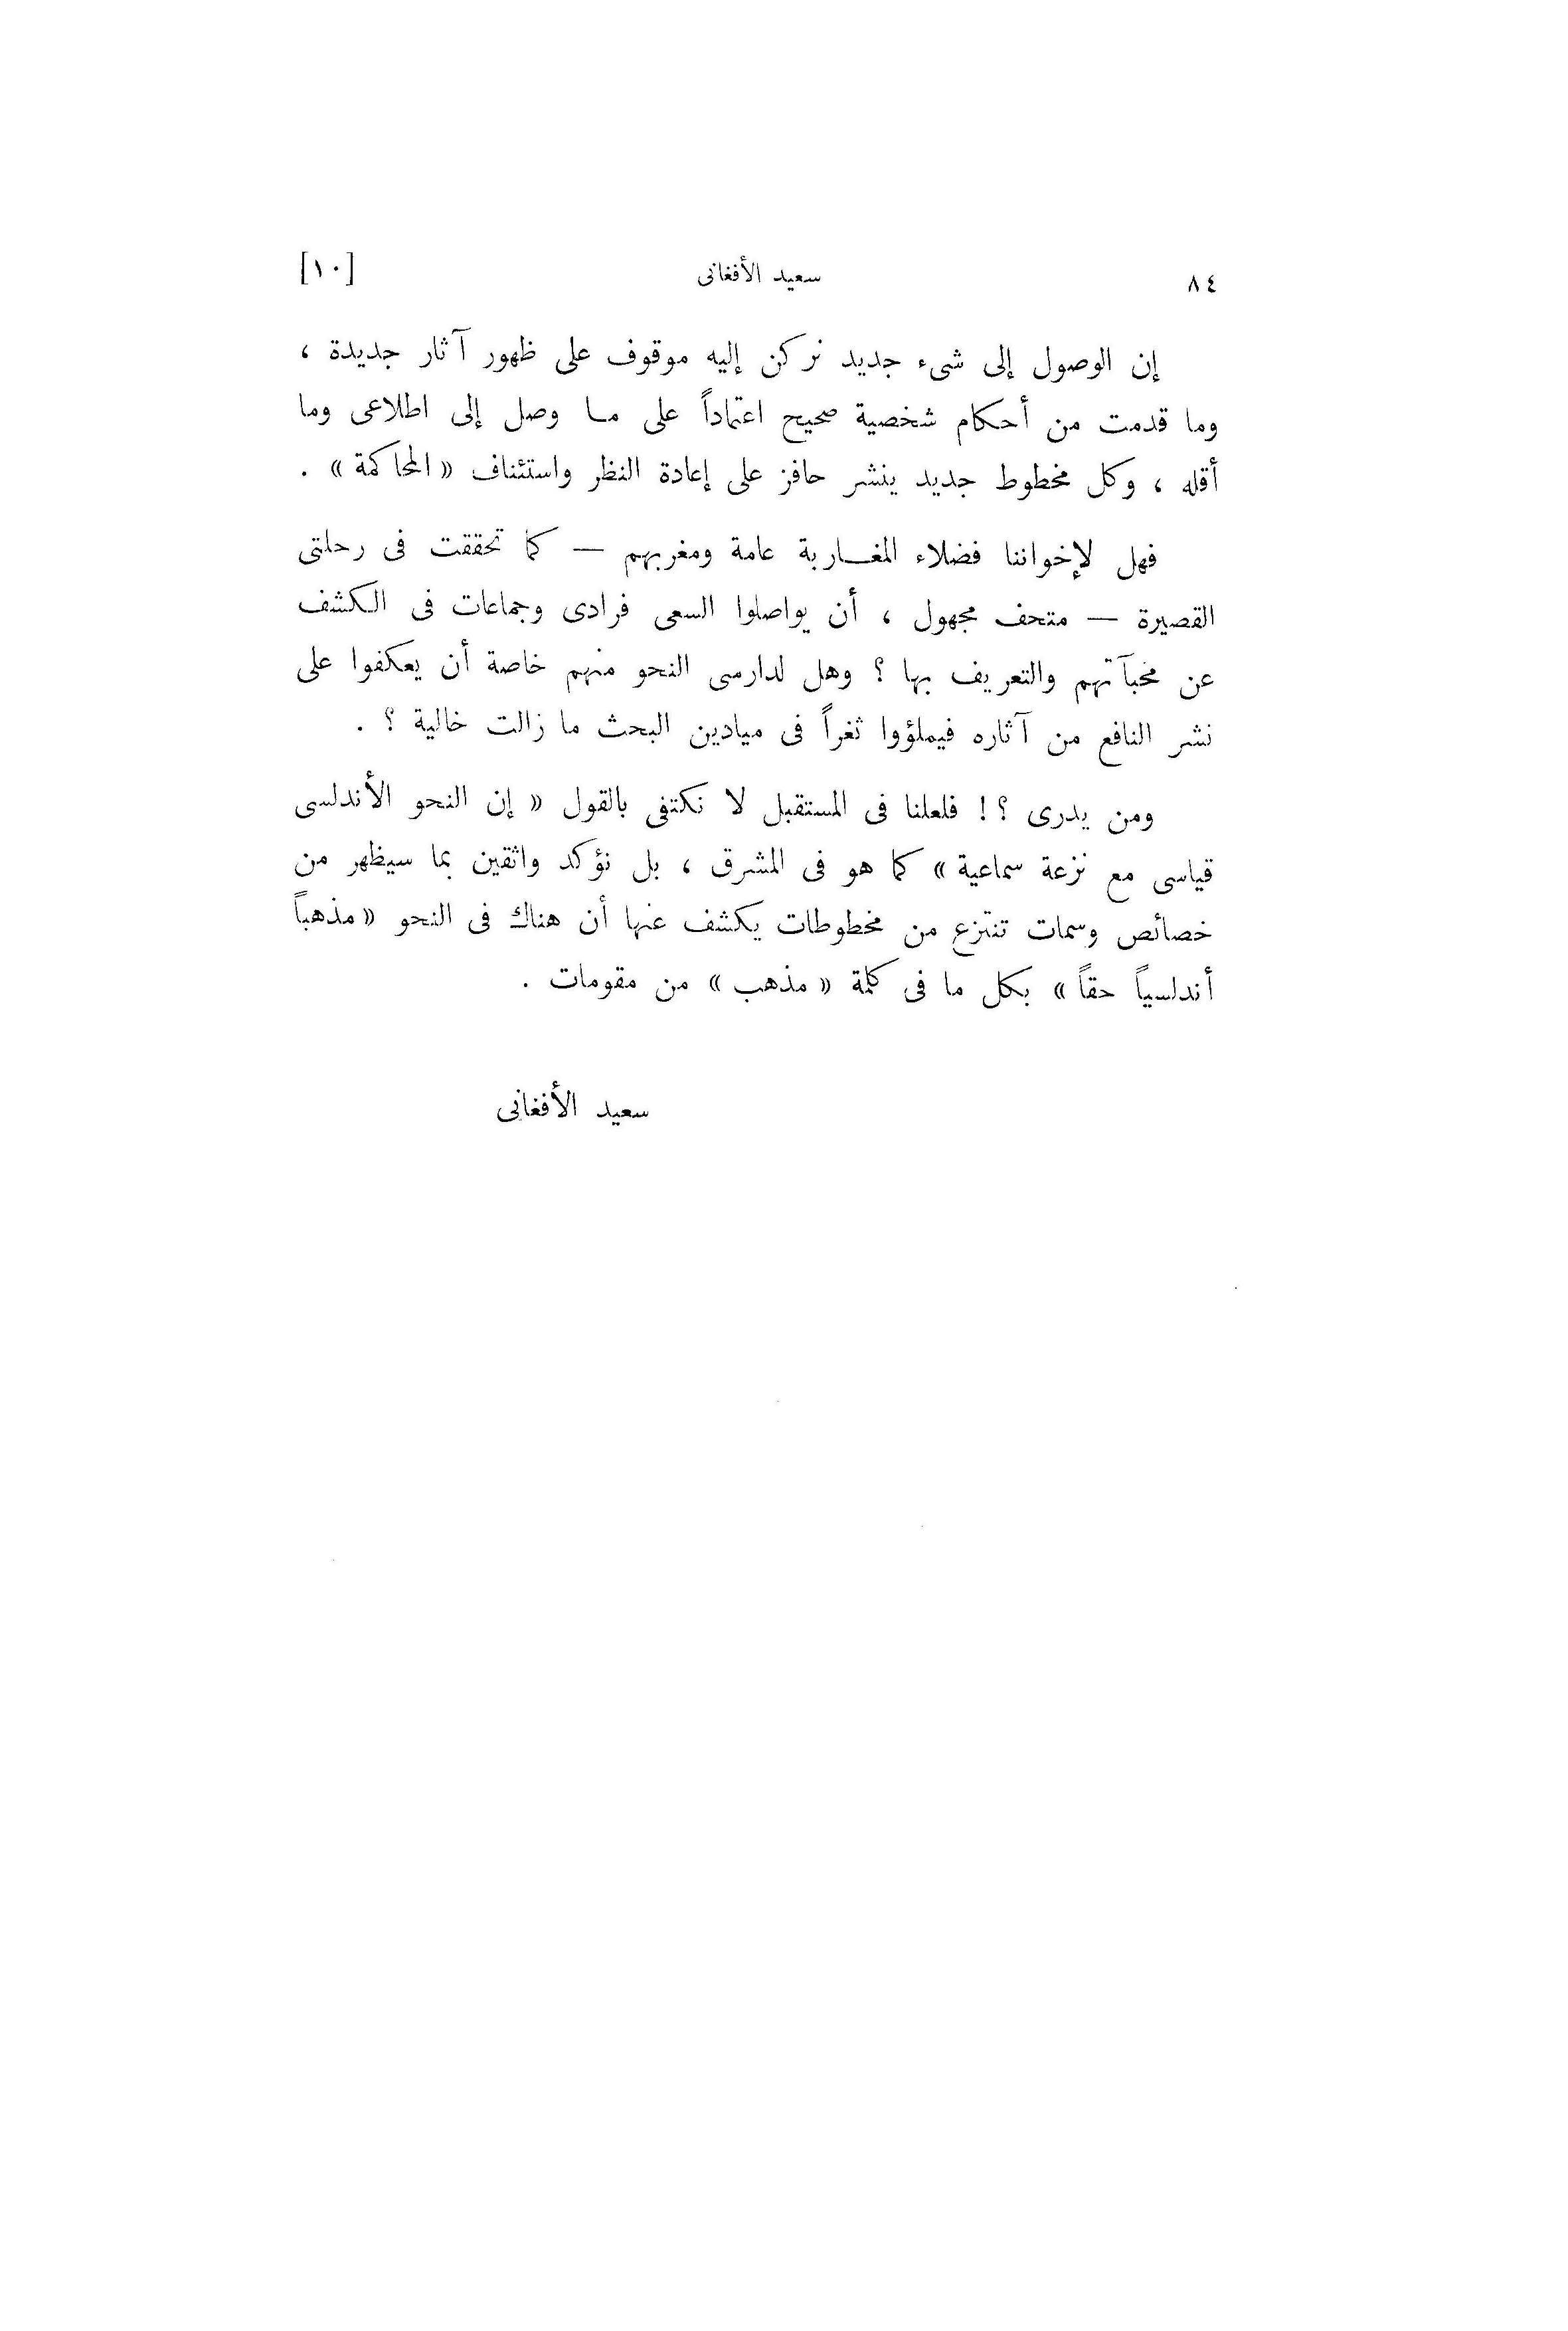 ٨٤ سعيد الأفغانى [١٠]
إن الوصول إلى شىء جديد نركن إليه موقوف على ظهور آثار جديدة ،
وما قدمت من أحكام شخصية صحيح اعتماداً على ما وصل إلى اطلاعى وما
أقله ، وكل مخطوط جديد ينشر حافز على إعادة النظر واستئناف « المحاكمة » .
فهل لإخواننا فضلاء المغاربة عامة ومغربهم — كما تحققت فى رحلتى
القصيرة — متحف مجهول ، أن يواصلوا السعى فرادى وجماعات فى الكشف
عن مخبآتهم والتعريف بها ؟ وهل لدارسى النحو منهم خاصة أن يعكفوا على
نشر النافع من آثاره فيملؤوا ثغراً فى ميادين البحث ما زالت خالية ؟ .
ومن يدرى ؟ ! فلعلنا فى المستقبل لا نكتفى بالقول « إن النحو الأندلسى
قياسى مع نزعة سماعية » كما هو فى المشرق ، بل نؤكد واثقين بما سيظهر من
خصائص وسمات تنتزع من مخطوطات يكشف عنها أن هناك فى النحو « مذهباً
أندلسياً حقاً » بكل ما فى كلمة « مذهب » من مقومات .
سعيد الأفغانى